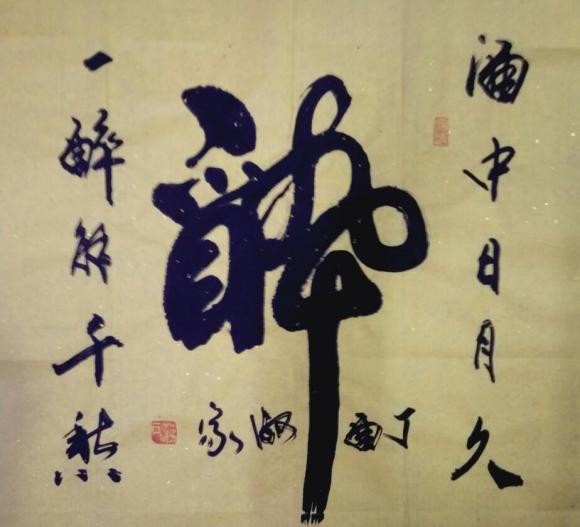 酒中日月久
醉
一醉解千愁
丁酉淑家